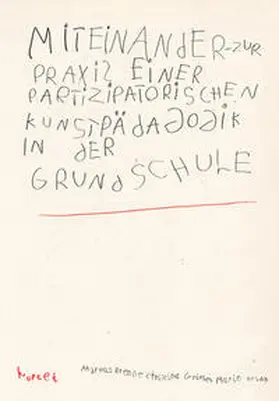 MiTEiNANdER-ZUR
PRAXiS EiNER
PARTiZiPATORiSCHEN
KUNSTPÄDAGOGiK
IN dER
GRUNdSCHULE
kopaed
Christina Griebel Mario